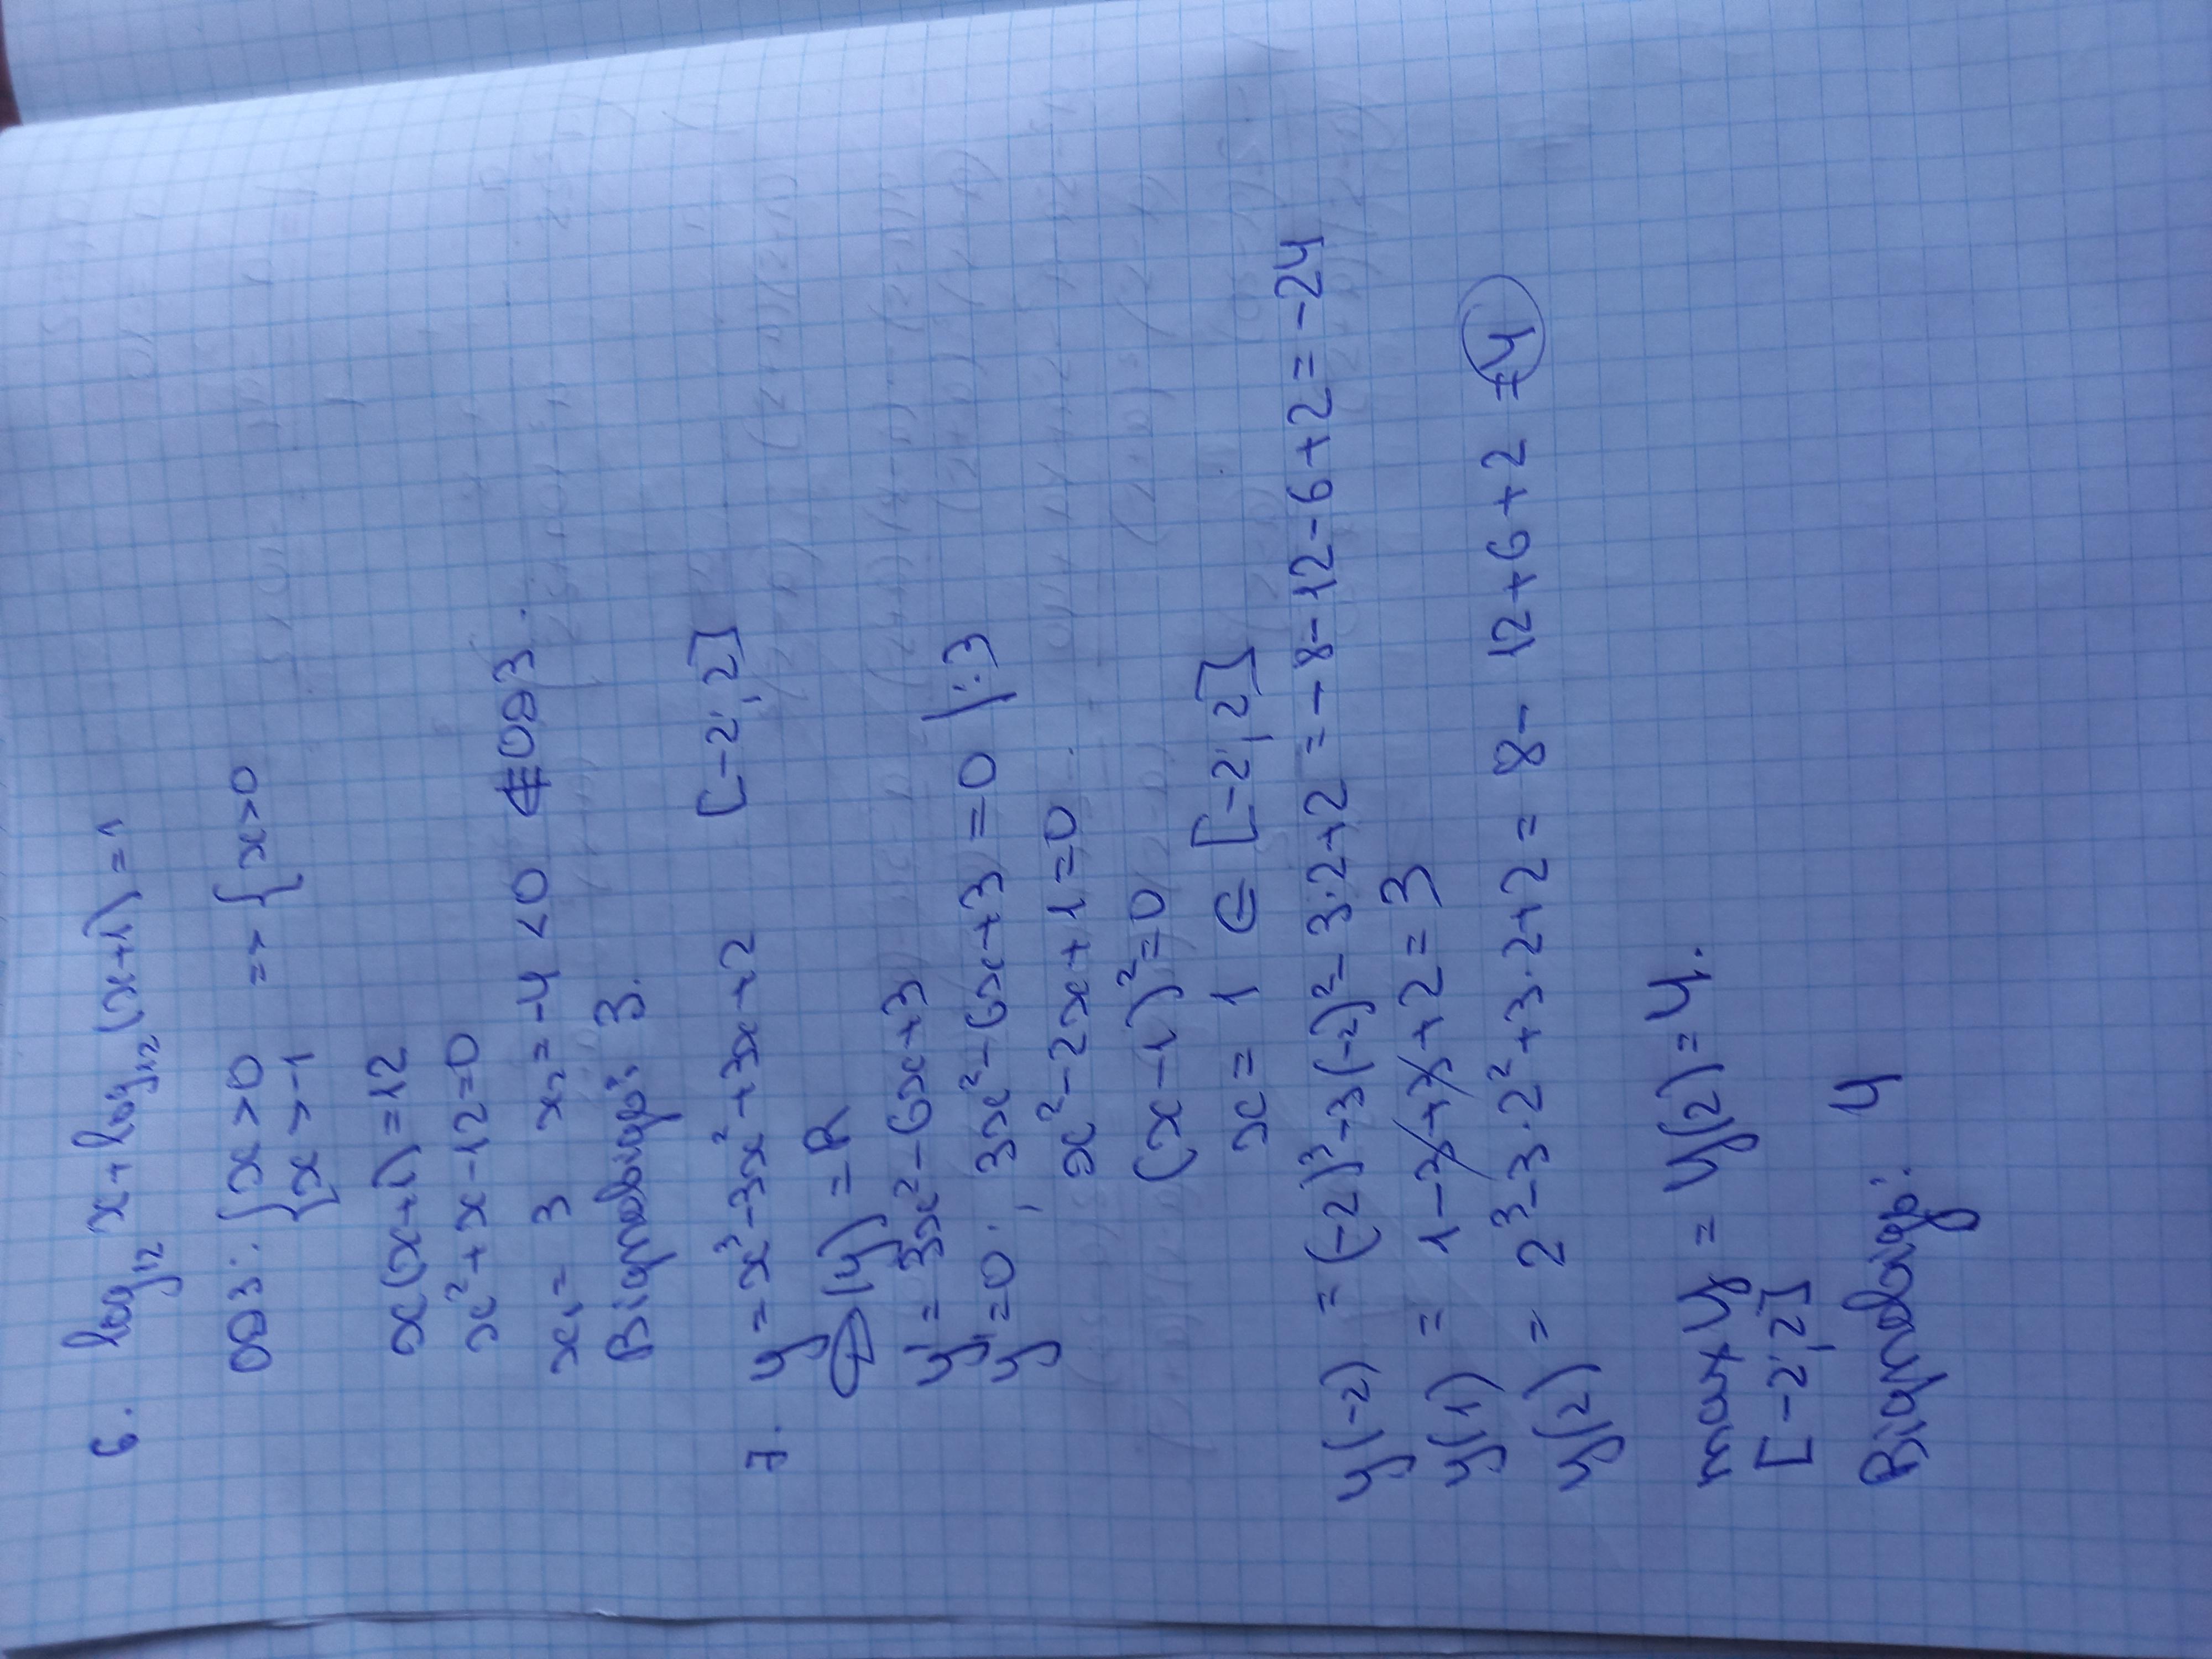 6. log₁₂ x + log₁₂ (x+1) = 1
ОДЗ: { x > 0 => { x > 0
x > -1
x(x+1) = 12
x² + x - 12 = 0
x₁ = 3 x₂ = -4 < 0 ∉ ОДЗ.
Відповідь: 3.
7. y = x³ - 3x² + 3x + 2 [-2; 2]
D(y) = R
y' = 3x² - 6x + 3
y' = 0; 3x² - 6x + 3 = 0 |:3
x² - 2x + 1 = 0
(x-1)² = 0
x = 1 ∈ [-2; 2]
y(-2) = (-2)³ - 3(-2)² - 3·2+2 = -8 - 12 - 6 + 2 = -24
y(1) = 1 - 3 + 3 + 2 = 3
y(2) = 2³ - 3·2² + 3·2+2 = 8 - 12 + 6 + 2 = 4
max y = y(2) = 4.
[-2; 2]
Відповідь: 4